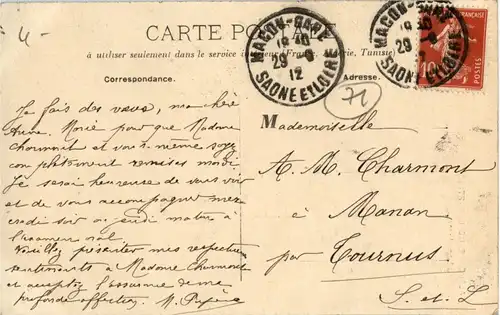 4
CARTE POSTALE
à utiliser seulement dans le service intérieur (France, Algérie, Tunisie)
Correspondance.
Adresse.
MACON-GARE
18 40
29 -
12
SAONE ET LOIRE
MACON-GARE
18 40
29
SAONE ET LOIRE
10
POSTES
71
Je fais des vœux, ma chère
pour que Madame
Charmont et vous-même soyez
complètement remises
Je serai heureuse de vous voir
et de vous accompagner mer-
credi soir ou jeudi matin à
l'examen oral.
Veuillez présenter mes respectueux
sentiments à Madame Charmont
et acceptez l'assurance de ma
profonde affection. M.
Mademoiselle
A. M. Charmont
à Manan
par Tournus
S. et L